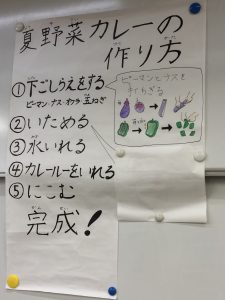 夏野菜カレーの
作り方
①下ごしらえをする
ピーマン ナス オクラ 玉ねぎ
ピーマンとナスを
②いためる
③水いれる
④カレールーをいれる
⑤にこむ
完成！